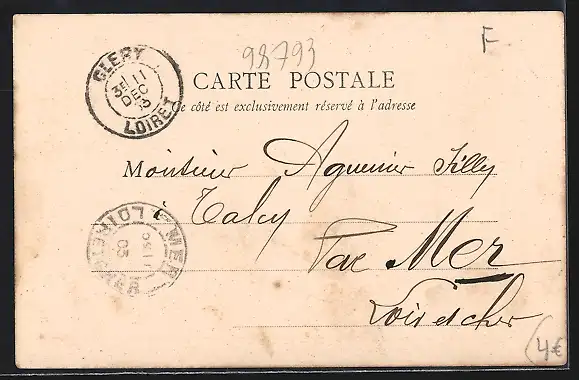 98793
F
CLERY
11
3E
DEC
03
LOIRET
CARTE POSTALE
Ce côté est exclusivement réservé à l'adresse
Monsieur Aguenier Filly
à Talcy
Par Mer
Loir et cher
MER
LOIR-ET-CHER
11
03
(4€